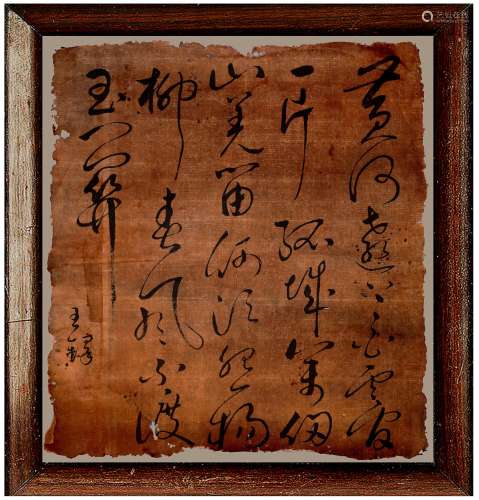 黄河遠上白雲間
一片孤城萬仞
山羌笛何須怨楊
柳春風不渡
玉門關
王鐸